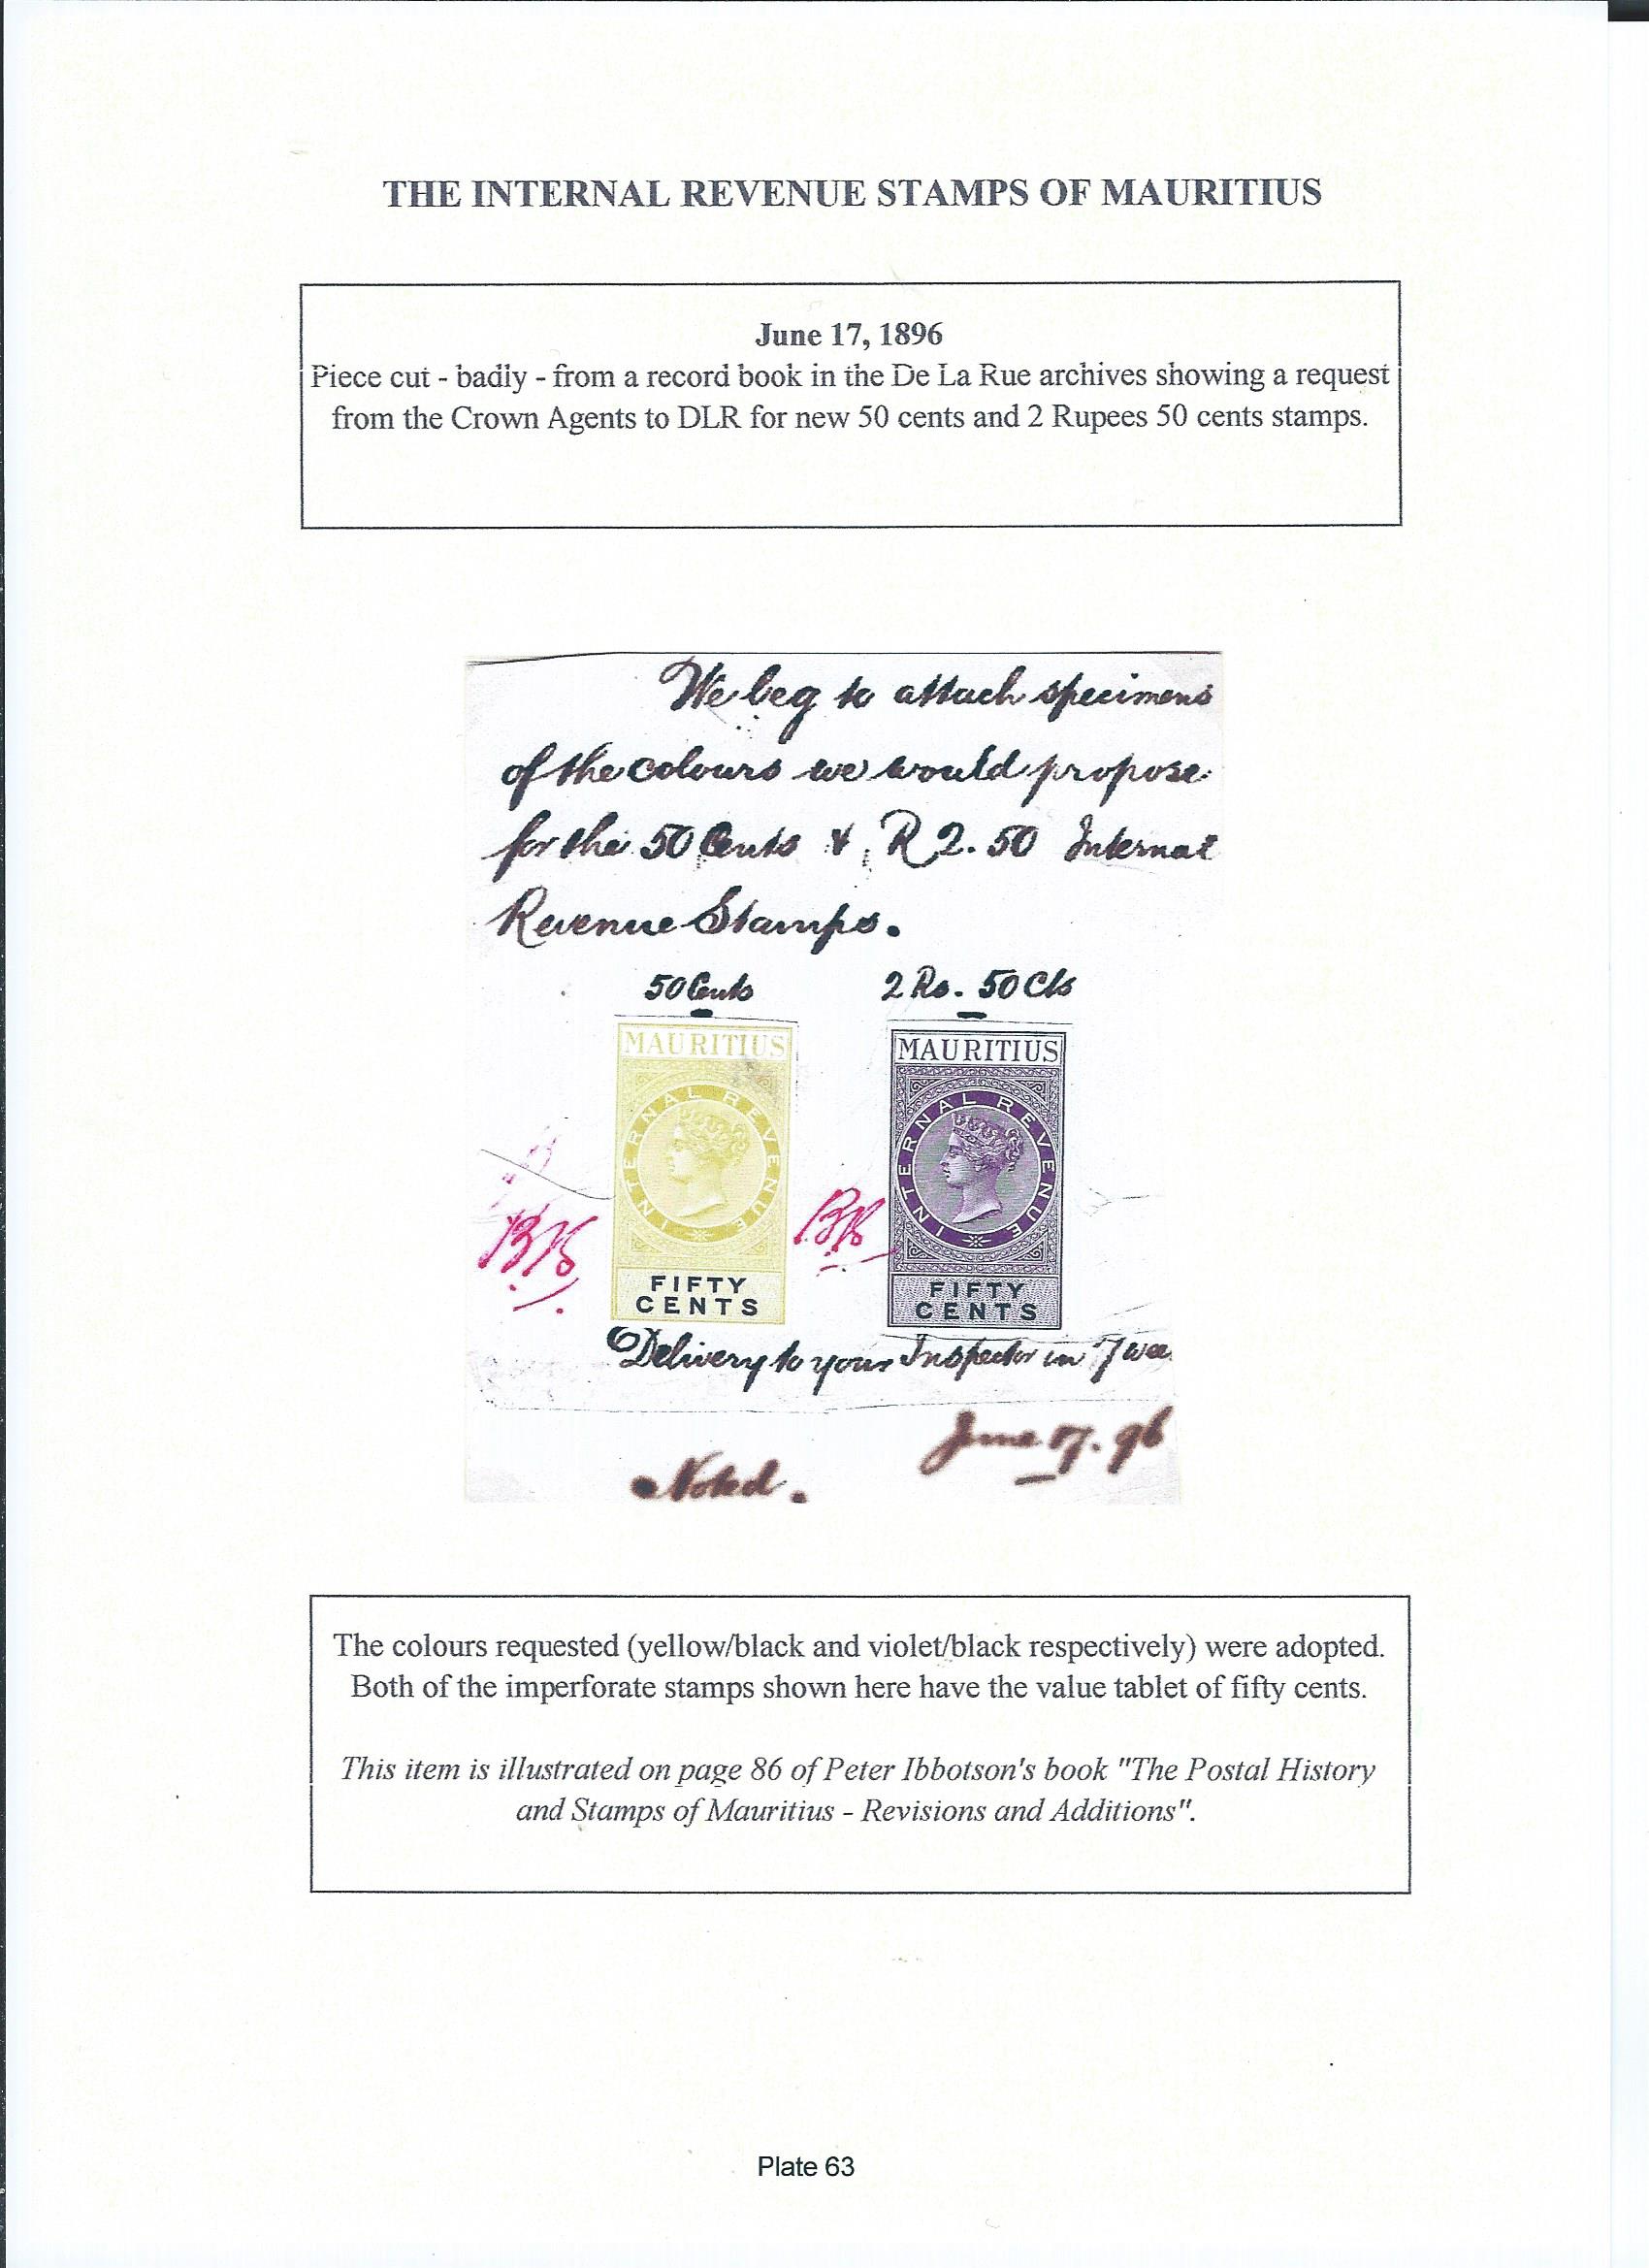 THE INTERNAL REVENUE STAMPS OF MAURITIUS
June 17, 1896
Piece cut - badly - from a record book in the De La Rue archives showing a request
from the Crown Agents to DLR for new 50 cents and 2 Rupees 50 cents stamps.
We beg to attach specimens
of the colours we would propose
for the 50 Cents & R 2.50 Internal
Revenue Stamps.
50 Cents 2 Rs. 50 Cts
MAURITIUS
INTERNAL REVENUE
FIFTY
CENTS
MAURITIUS
INTERNAL REVENUE
FIFTY
CENTS
Delivery to your Inspector in 7 wee
June 17. 96
Noted.
The colours requested (yellow/black and violet/black respectively) were adopted.
Both of the imperforate stamps shown here have the value tablet of fifty cents.
This item is illustrated on page 86 of Peter Ibbotson's book "The Postal History
and Stamps of Mauritius - Revisions and Additions".
Plate 63